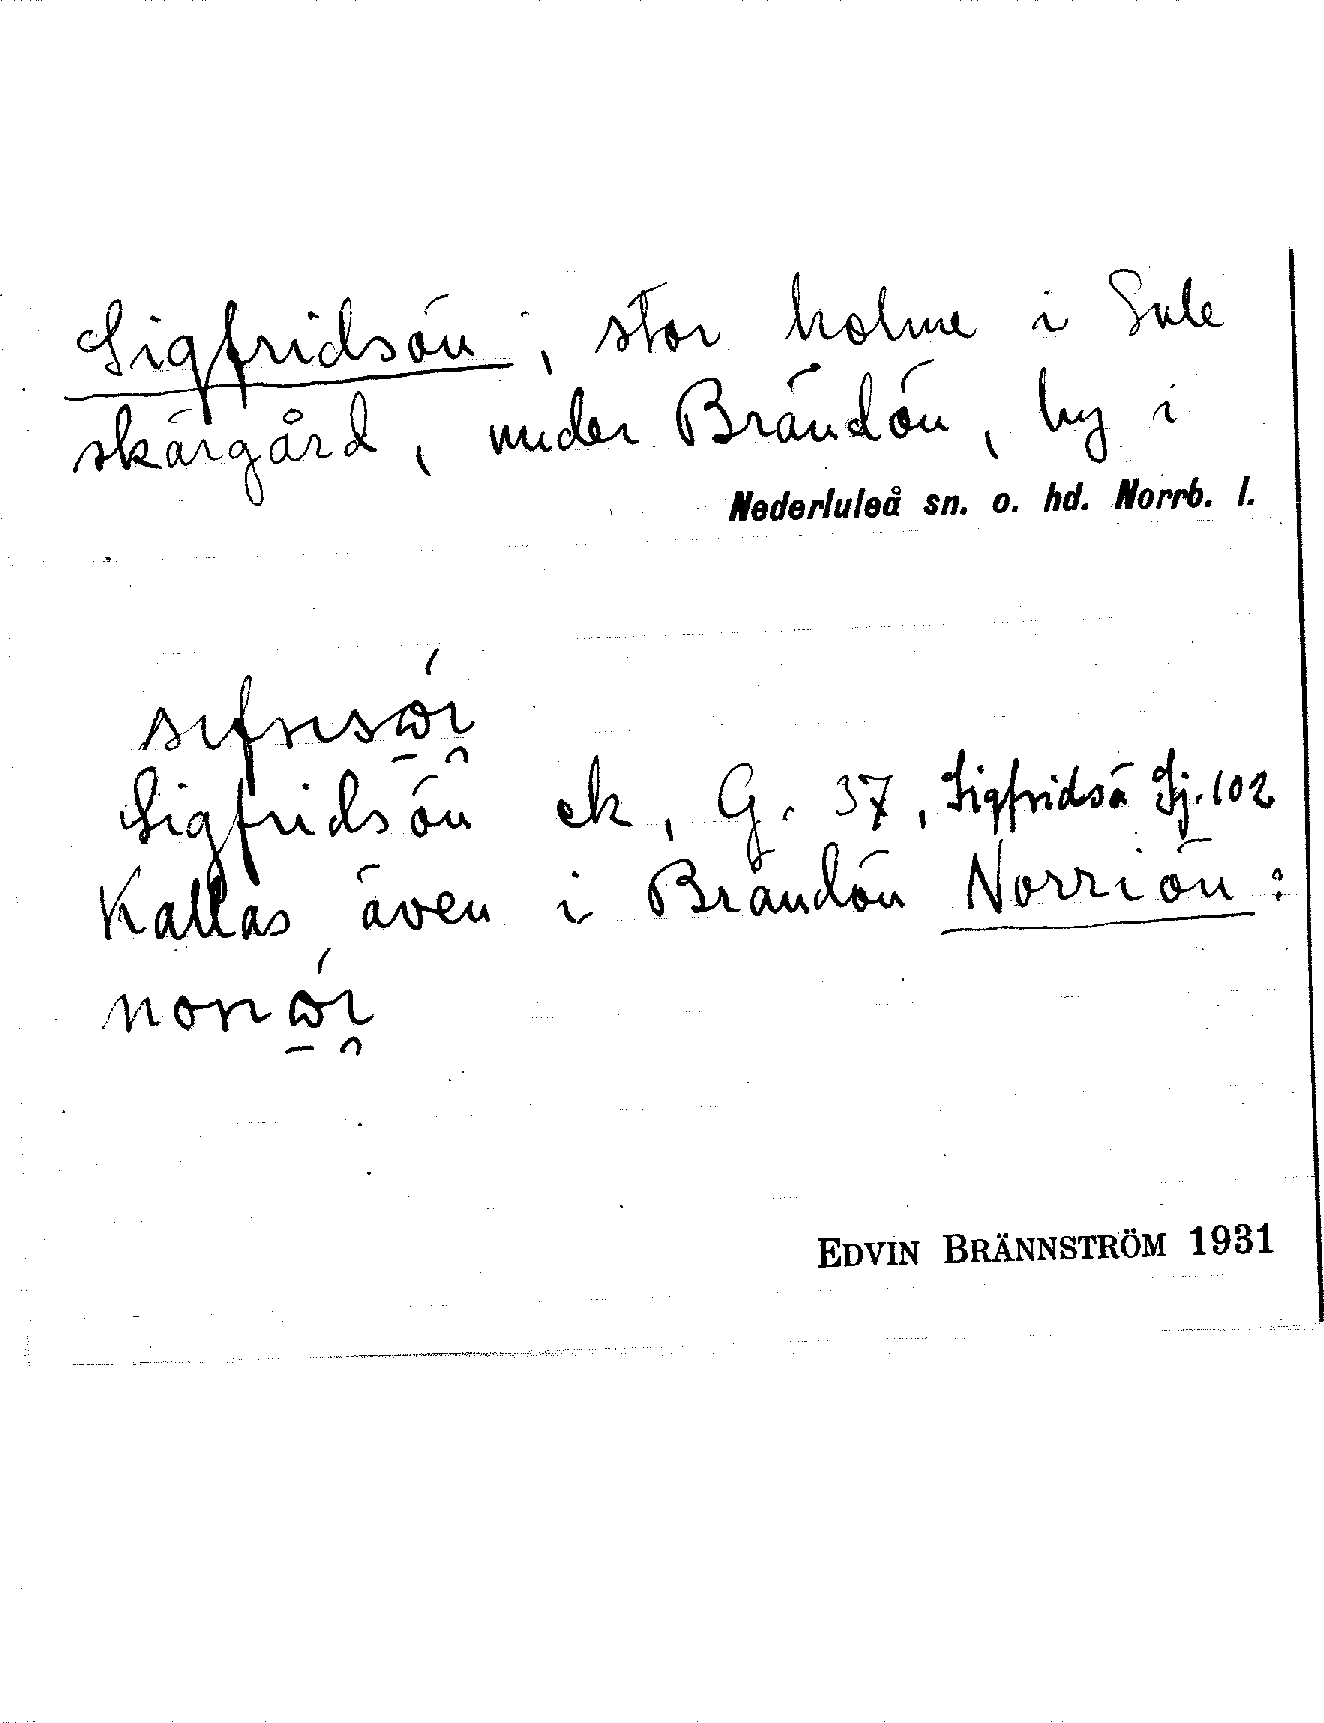 Sigfridsön, stor holme i Lule
skärgård, under Brändön, by i
Nederluleå sn. o. hd. Norrb. l.
Sigfridsön ek, G. 37, Sigfridsö Sj. 102
Kallas även i Brändön Norriön:
EDVIN BRÄNNSTRÖM 1931